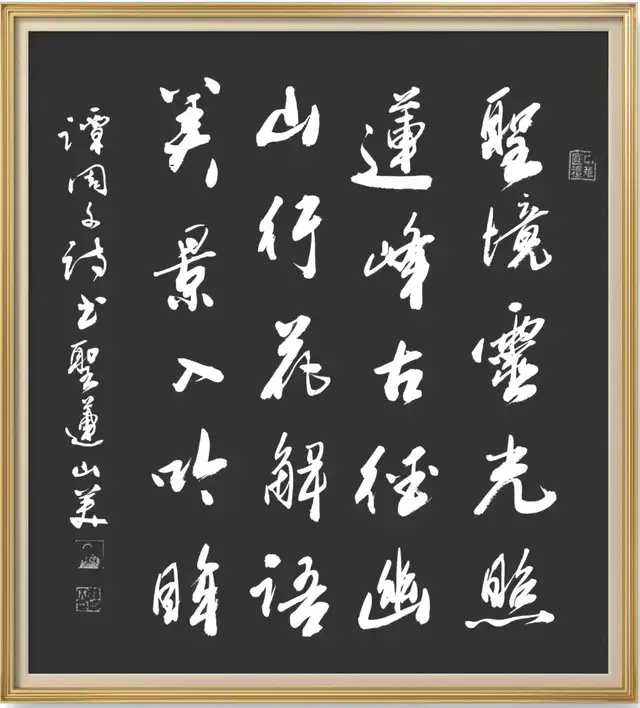 聖境靈光照
蓮峰古徑幽
山行花解語
美景入吟眸
譚周文詩書聖蓮山美